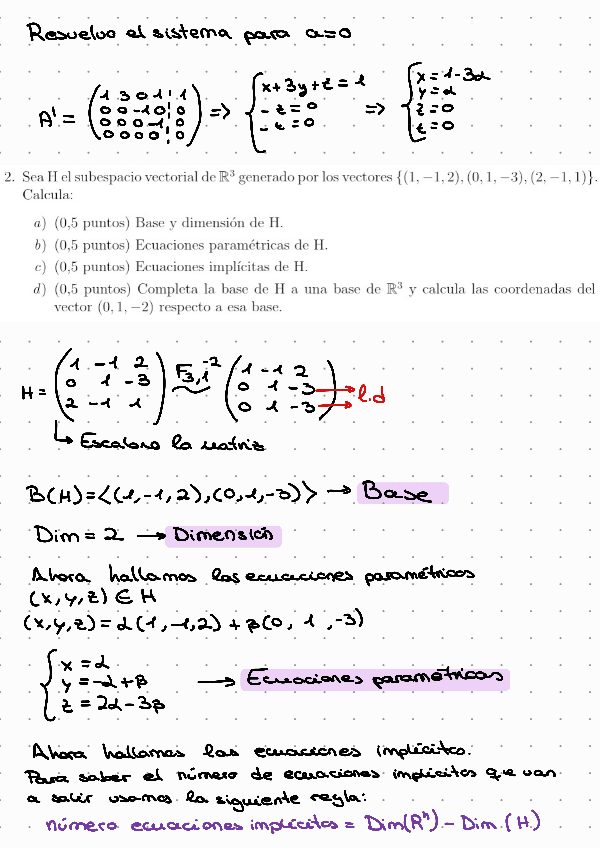 Resuelvo el sistema para a=0
A' = (1 3 0 1 | 1
0 0 -1 0 | 0
0 0 0 -1 | 0
0 0 0 0 | 0) => { x+3y+t=1
-z=0
-t=0 => { x=1-3α
y=α
z=0
t=0
2. Sea H el subespacio vectorial de ℝ³ generado por los vectores {(1, −1, 2), (0, 1, −3), (2, −1, 1)}.
Calcula:
a) (0,5 puntos) Base y dimensión de H.
b) (0,5 puntos) Ecuaciones paramétricas de H.
c) (0,5 puntos) Ecuaciones implícitas de H.
d) (0,5 puntos) Completa la base de H a una base de ℝ³ y calcula las coordenadas del
vector (0, 1, −2) respecto a esa base.
H = (1 -1 2
0 1 -3
2 -1 1) F₃,₁⁻² ~ (1 -1 2
0 1 -3
0 1 -3) → l.d
↳ Escalono la matriz
B(H)=<(1,-1,2),(0,1,-3)> → Base
Dim = 2 → Dimensión
Ahora hallamos las ecuaciones paramétricas
(x,y,z) ∈ H
(x,y,z) = α(1,-1,2) + β(0, 1, -3)
{ x = α
y = -α+β
z = 2α-3β → Ecuaciones paramétricas
Ahora hallamos las ecuaciones implícitas.
Para saber el número de ecuaciones implícitas que van
a salir usamos la siguiente regla:
número ecuaciones implícitas = Dim(Rⁿ) - Dim (H)